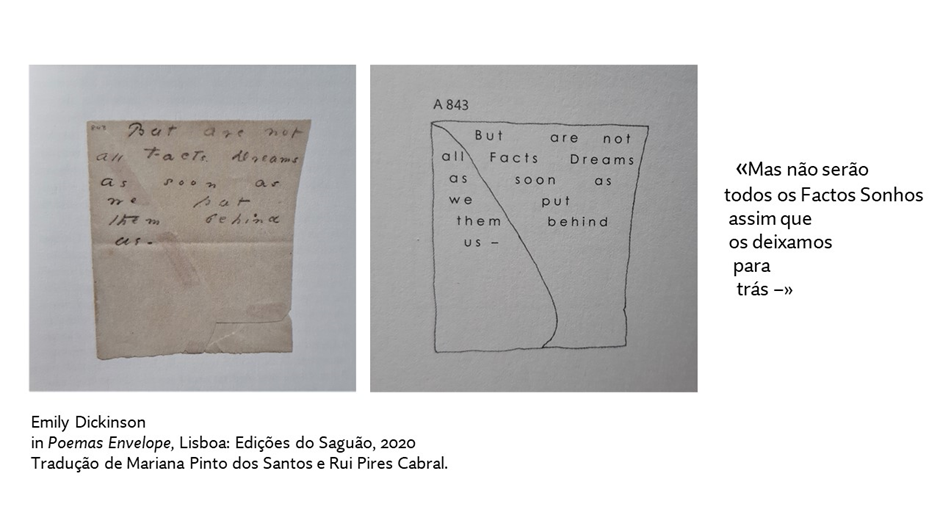 843 But are not
all Facts Dreams
as soon as
we put
them behind
us -
A 843
But are not
all Facts Dreams
as soon as
we put
them behind
us –
«Mas não serão
todos os Factos Sonhos
assim que
os deixamos
para
trás –»
Emily Dickinson
in Poemas Envelope, Lisboa: Edições do Saguão, 2020
Tradução de Mariana Pinto dos Santos e Rui Pires Cabral.